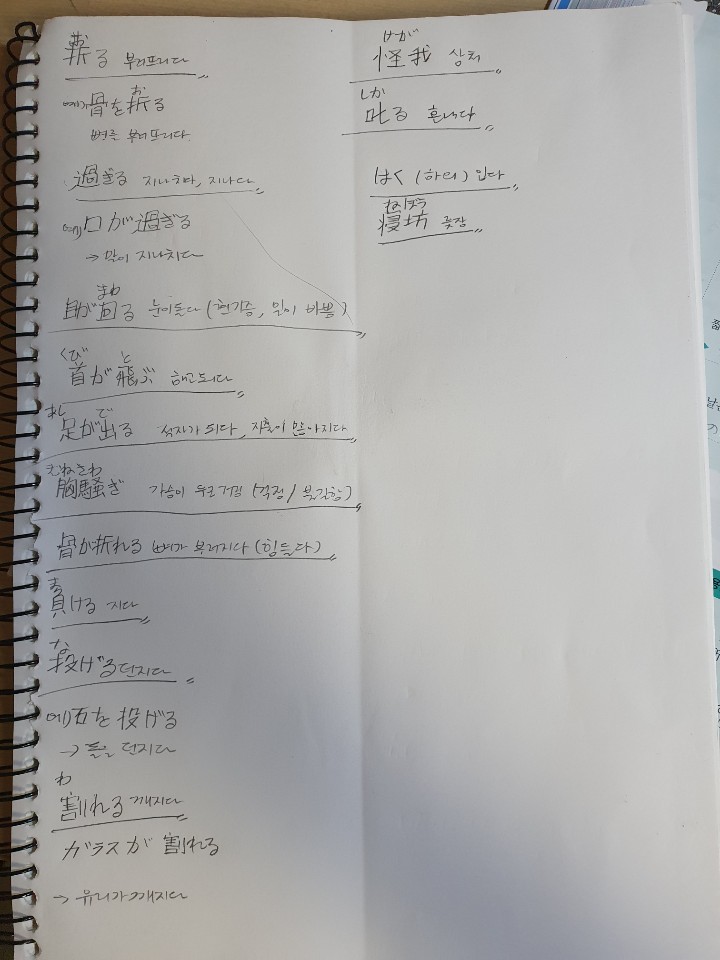 折る 부러뜨리다
お
예) 骨を折る
뼈를 부러뜨리다
過ぎる 지나치다, 지나다
예) 口が過ぎる
→ 말이 지나치다
まわ
目が回る 눈이돌다 (현기증, 일이 바쁨)
くび と
首が飛ぶ 해고되다
あし で
足が出る 적자가 되다, 지출이 많아지다
むねさわ
胸騒ぎ 가슴이 두근거림 (걱정/불길함)
骨が折れる 뼈가 부러지다 (힘들다)
ま
負ける 지다
な
投げる 던지다
예) 石を投げる
→ 돌을 던지다
わ
割れる 깨지다
ガラスが割れる
→ 유리가 깨지다
けが
怪我 상처
しか
叱る 혼내다
はく (하의) 입다
ねぼう
寝坊 늦잠